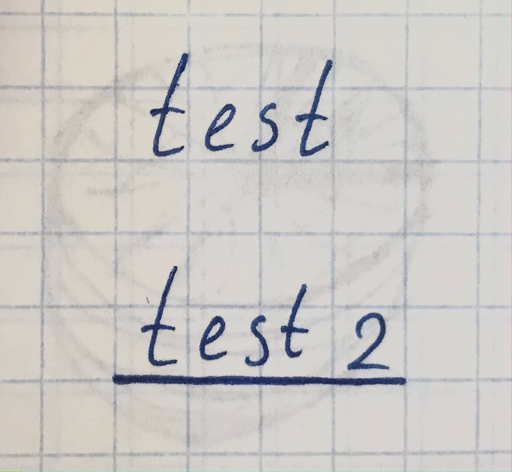 test
test 2